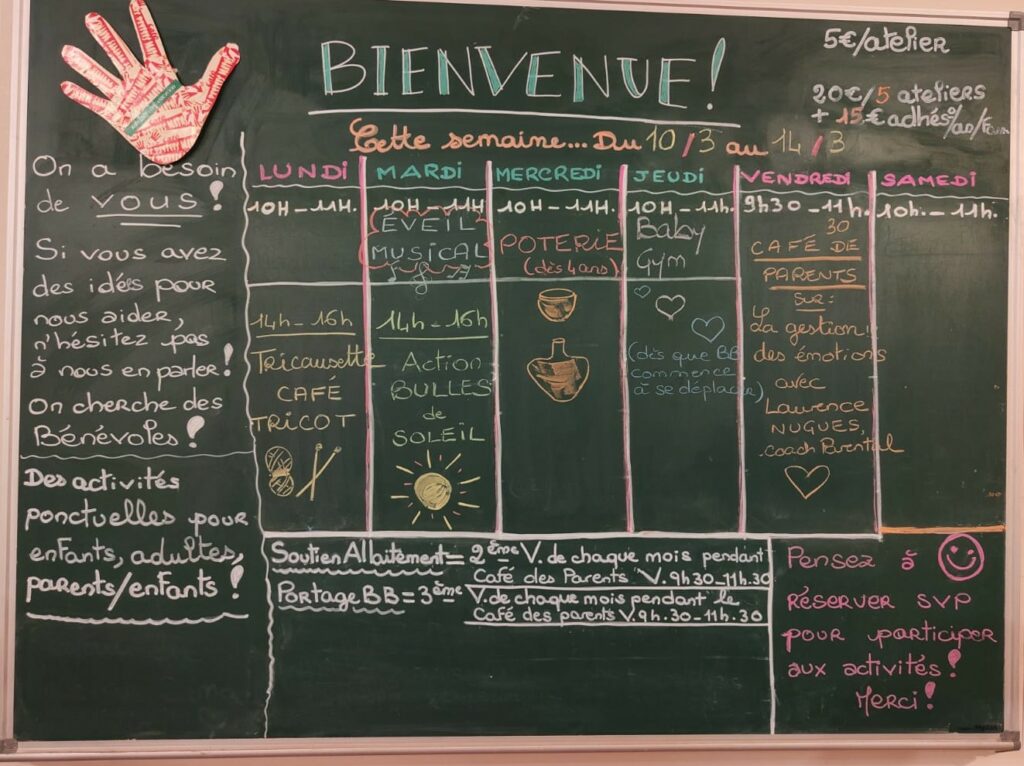 BIENVENUE!
5€/atelier
20€/5 ateliers
+ 15€ adhés°/an/
Cette semaine... Du 10/3 au 14/3
On a besoin
de vous!
Si vous avez
des idées pour
nous aider,
n'hésitez pas
à nous en parler!
On cherche des
Bénévoles!
Des activités
ponctuelles pour
enfants, adultes,
parents/enfants!
LUNDI
10H - 11H.
14h - 16h
Tricausette
CAFÉ
TRICOT
MARDI
10H - 11H
ÉVEIL
MUSICAL
14h - 16h
Action
BULLES
de
SOLEÏL
MERCREDI
10H - 11H.
POTERIE
(dès 4 ans)
JEUDI
10H - 11h.
Baby
Gym
(dès que BB
commence
à se déplacer)
VENDREDI
9h30 - 11h.
30
CAFÉ DE
PARENTS
SUR:
La gestion
des émotions
avec
Laurence
NUGUES,
coach Parental
SAMEDI
10h. - 11h.
Soutien Allaitement = 2ème V. de chaque mois pendant
Café des Parents V. 9h30-11h.30
Portage BB = 3ème V. de chaque mois pendant le
Café des parents V. 9h.30-11h.30
Pensez à
RÉSERVER SVP
pour participer
aux activités!
Merci!